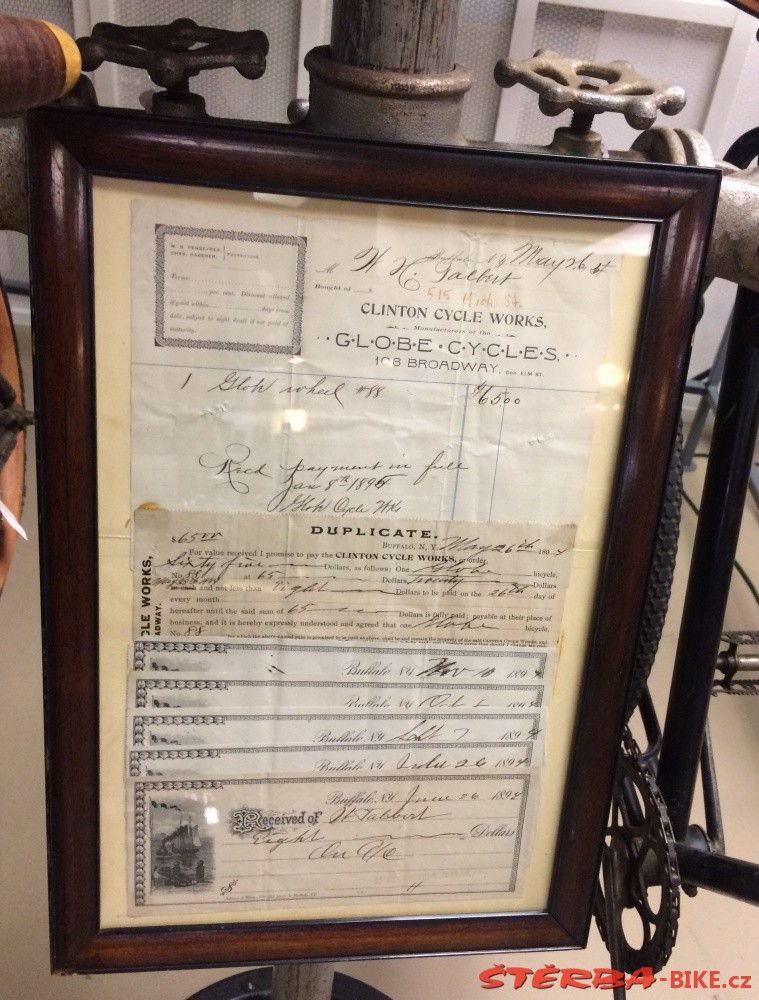 Buffalo, N.Y. May 26
M W. H. Talbert
Bought of
515 Mich St.
CLINTON CYCLE WORKS,
Manufacturers of the
GLOBE CYCLES,
108 BROADWAY, COR. ELM ST.
Terms:
per cent. Discount allowed
if paid within days from
date, subject to sight draft if not paid at
maturity.
1 Globe wheel #88 $65.00
Recd payment in full
Jan 8th 1895
Globe Cycle Wks
DUPLICATE.
$65.00
BUFFALO, N. Y. May 26th 1894
For value received I promise to pay the CLINTON CYCLE WORKS, or order,
Sixty five Dollars, as follows: One Globe bicycle,
No. 88 at 65 Dollars, Twenty Dollars
in cash and not less than Eight Dollars to be paid on the 26th day of
every month
hereafter until the said sum of 65 Dollars is fully paid; payable at their place of
business, and it is hereby expressly understood and agreed that one Globe bicycle,
No. 88
CLE WORKS,
ADWAY.
Buffalo, N.Y. Nov 10 1894
Buffalo, N.Y. Oct 1 1894
Buffalo, N.Y. Sept 7 1894
Buffalo, N.Y. July 26 1894
Buffalo, N.Y. June 26 1894
Received of W Talbert
Eight Dollars
On a/c
$8
ŠTĚRBA-BIKE.cz